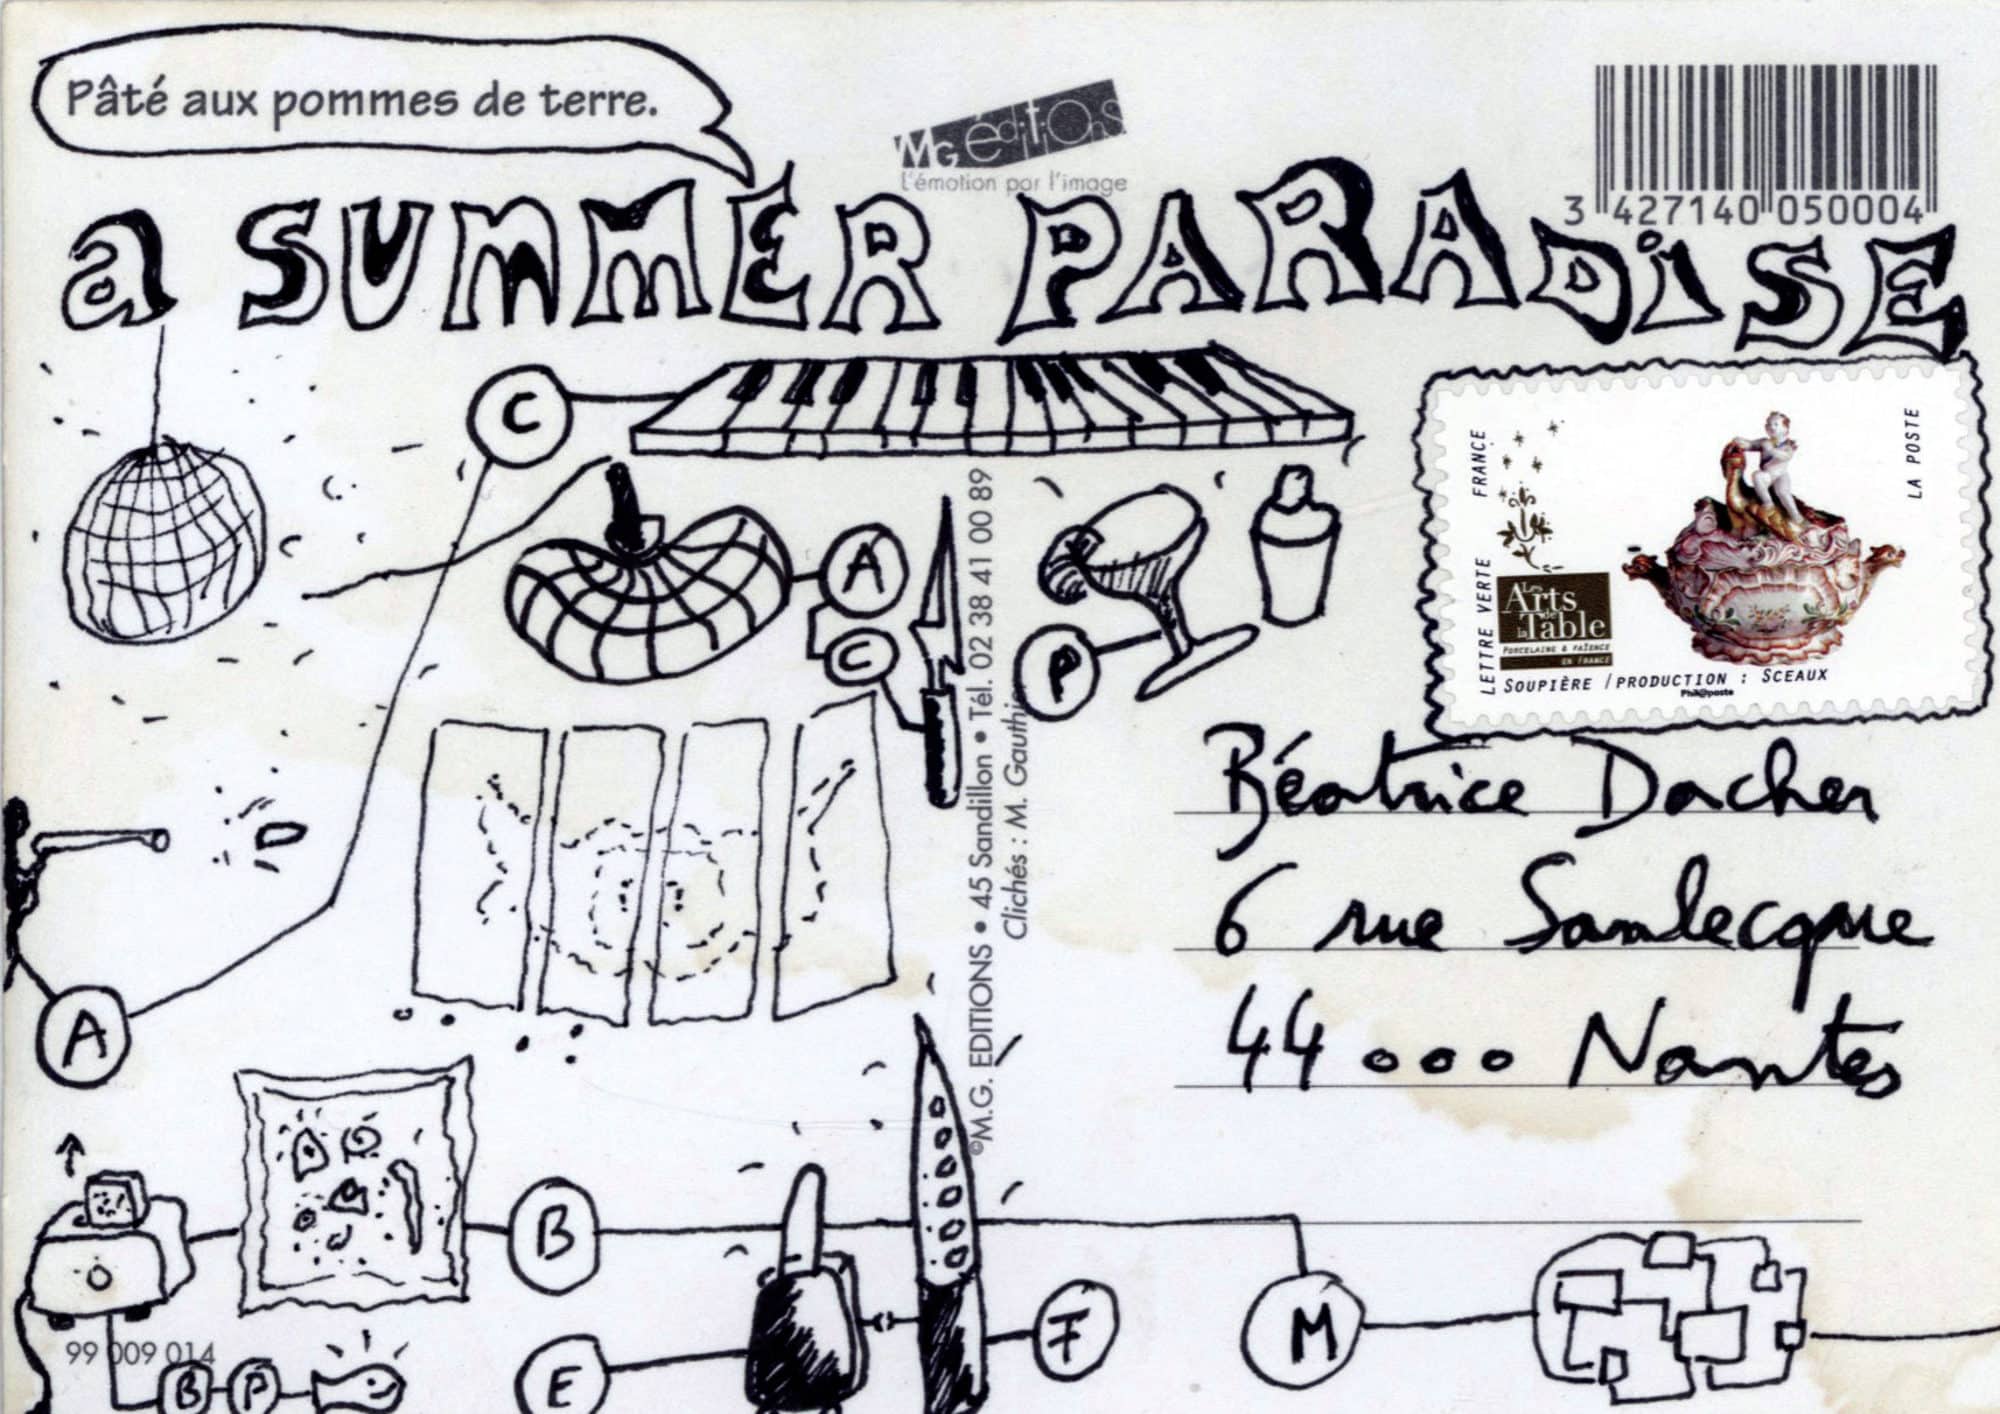 Pâté aux pommes de terre.
MG éditions
l'émotion par l'image
3 427140 050004
a SUMMER PARADISE
C
A
C
P
FRANCE
LA POSTE
LETTRE VERTE
Les Arts de la Table
PORCELAINE & FAÏENCE
EN FRANCE
SOUPIÈRE / PRODUCTION : SCEAUX
Phil@poste
©M.G. EDITIONS • 45 Sandillon • Tél. 02 38 41 00 89
Clichés : M. Gauthier
Béatrice Dacher
6 rue Sanlecque
44000 Nantes
A
B
F
M
E
99 009 014
B
P